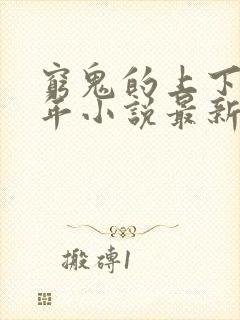 窮鬼的上下
年小說最新
搬磚1